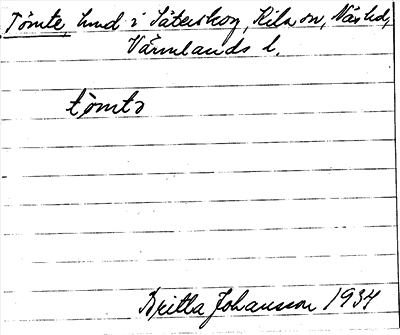 Tömte, hmd i Säterskog, Kila sn, Näs hd,
Värmlands l.
tömtə
Britta Johansson 1934